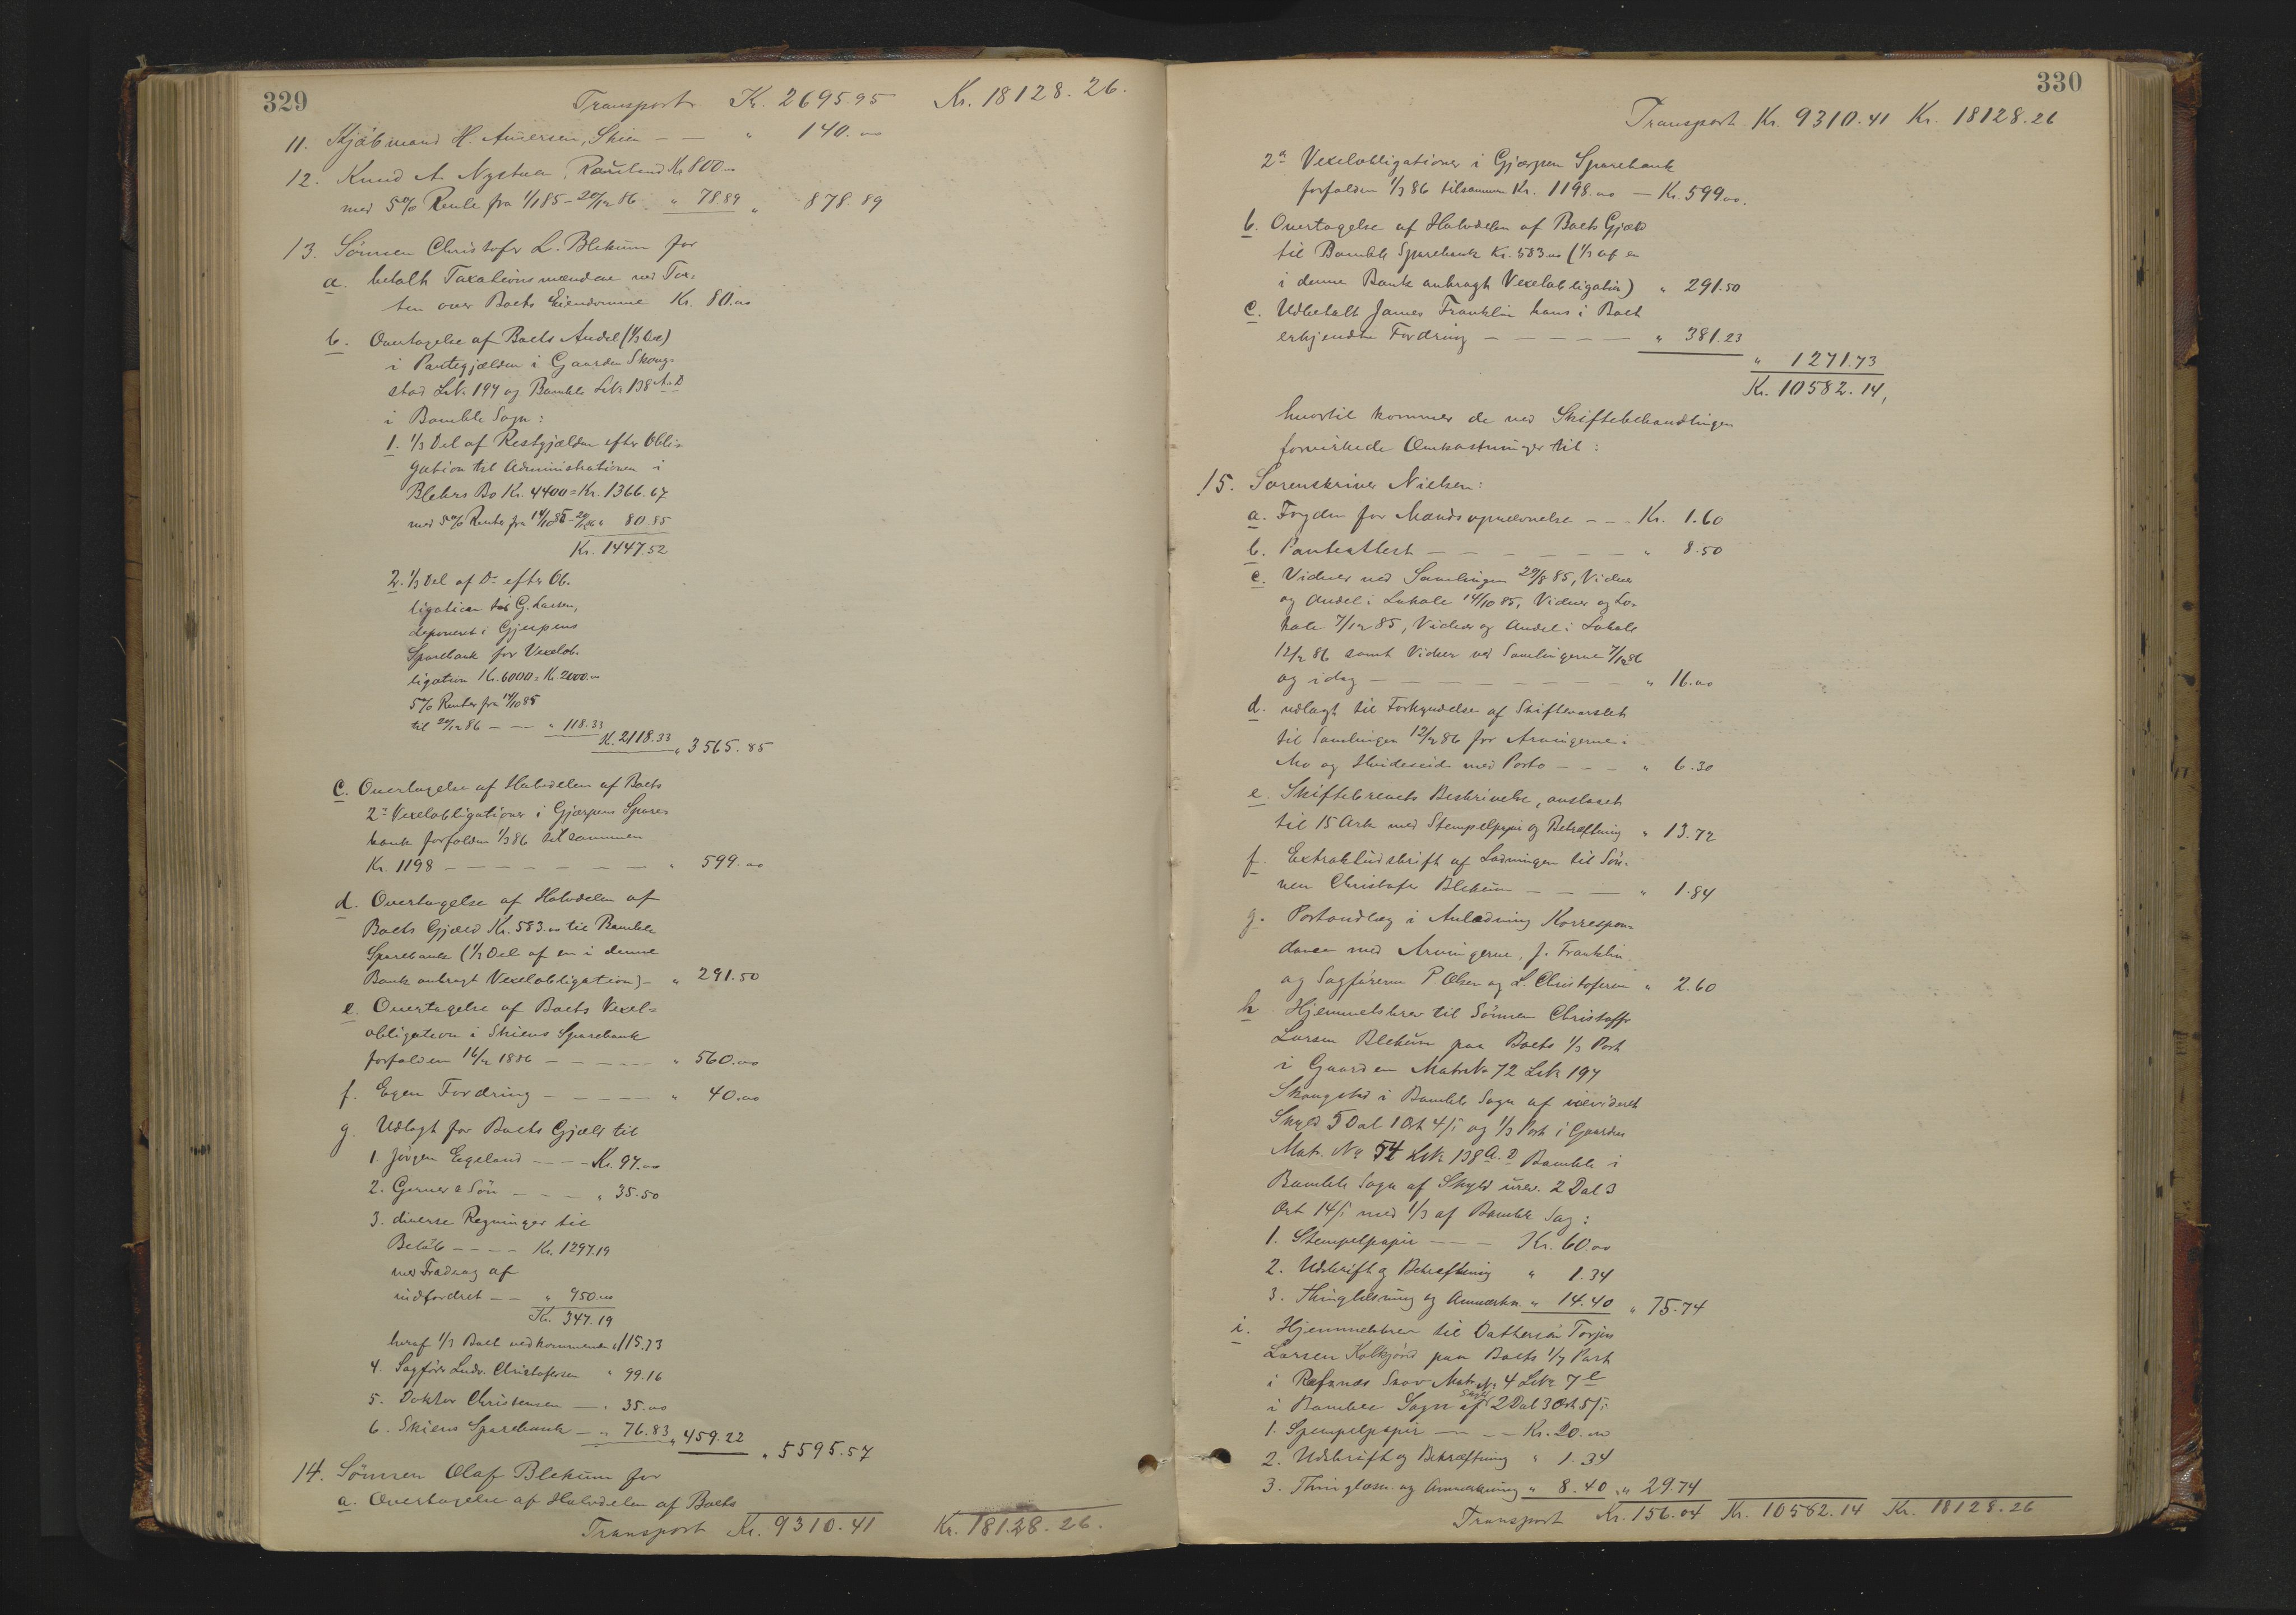 329
Transport Kr. 2695.95 Kr. 18128.26.
11. Kjøbmand H. Amersen, Skien — — " 140.00
12. Knud A. Nystua, Rauland Kr 800.00
med 5% Rente fra 1/1 85 - 20/12 86 " 78.89 " 878.89
13. Sønnen Christofer L. Blekum for
a. betalt Taxationsmændene ved Tax-
ten over Boets Eiendomme Kr. 80.00
b. Overtagelse af Boets Andel (1/3 Del)
i Pantegjælden i Gaarden Skong-
stad Lbk 197 og Bamble Lbk 138 A.D
i Bamble Sogn:
1. 1/3 Del af Restgjælden efter Obli-
gation til Administrationen i
Blehrs Bo Kr. 4400 = Kr. 1366.67
med 5% Renter fra 14/10 85 - 20/12 86 " 80.85
Kr. 1447.52
2. 1/3 Del af Do efter Ob-
ligation til G. Larsen,
deponeret i Gjerpens
Sparebank for Vexelob-
ligation Kr. 6000 = Kr. 2000.00
5% Renter fra 14/10 85
til 20/12 86 — — " 118.33
Kr. 2118.33 " 3565.85
c. Overtagelse af Halvdelen af Boets
2de Vexelobligationer i Gjerpens Spare-
bank forfalden 1/3 86 tilsammen
Kr. 1198 — — — — — — — " 599.00
d. Overtagelse af Halvdelen af
Boets Gjæld Kr. 583.00 til Bamble
Sparebank (1/3 Del af en i denne
Bank anbragt Vexelobligation) — " 291.50
e. Overtagelse af Boets Vexel-
obligation i Skiens Sparebank
forfalden 16/12 1886 — — — — — " 560.00
f. Egen Fordring — — — — — " 40.00
g. Udlagt for Boets Gjæld til
1. Jørgen Eegeland — — — Kr. 97.00
2. Gerner & Søn — — — " 35.50
3. diverse Regninger til
Beløb — — — — Kr. 1297.19
med Fradrag af
indfordret — — " 950.00
Kr. 347.19
heraf 1/3 Boet vedkommende " 115.73
4. Sagfører Ludv. Christofersen " 99.16
5. Doktor Christensen — " 35.00
6. Skiens Sparebank — " 76.83 " 459.22
" 5595.57
14. Sønnen Olaf Blekum for
a. Overtagelse af Halvdelen af Boets
Transport Kr. 9310.41 Kr. 18128.26.
330
Transport Kr. 9310.41 Kr. 18128.26
2de Vexelobligationer i Gjerpen Sparebank
forfalden 1/3 86 tilsammen Kr. 1198.00 — Kr. 599.00.
b. Overtagelse af Halvdelen af Boets Gjæld
til Bamble Sparebank Kr. 583.00 (1/3 af en
i denne Bank anbragt Vexelobligation) " 291.50
c. Udbetalt James Franklin hans i Boet
erkjendte Fordring — — — — — " 381.23
" 1271.73
Kr. 10582.14,
hvortil kommer de ved Skiftebehandlingen
forvirkede Omkostninger til:
15. Sorenskriver Nielsen:
a. Fogden for Mandsopnævnelse — — — Kr. 1.60
b. Panteattest — — — — — — — " 8.50
c. Vidner ved Samlingen 29/8 85, Vidner
og Andel i Lokale 14/10 85, Vidner og Lo-
kale 7/12 85, Vidner og Andel i Lokale
12/2 86 samt Vidner ved Samlingerne 7/12 86
og idag — — — — — — — — " 16.00
d. udlagt til Forkyndelse af Skiftevarslet
til Samlingen 12/2 86 for Arvingerne i
Mo og Hvideseid med Porto — — — " 6.30
e. Skiftebrevets Beskrivelse, anslaaet
til 15 Ark med Stempelpapir og Bekræftning " 13.72
f. Extraktudskrift af Lodningen til Søn-
nen Christofer Blekum — — — " 1.84
g. Portoudlæg i Anledning Korrespon-
dance med Arvingerne, J. Franklin
og Sagførerne P Olsen og L. Christofersen " 2.60
h. Hjemmelsbrev til Sønnen Christoffer
Larsen Blekum paa Boets 1/3 Part
i Gaarden MatrNo 72 Lbk 197
Skongstad i Bamble Sogn af urevideret
Skyld 5 Dal 1 Ort 4 ß og 1/3 Part i Gaarden
Mat. No 54 Lbk 138 A. D Bamble i
Bamble Sogn af Skyld urev. 2 Dal 3
Ort 14 ß med 1/3 af Bamble Sag:
1. Stempelpapir — — — Kr. 60.00
2. Udskrift og Bekræftning " 1.34
3. Thinglæsning og Anmærkn. " 14.40 " 75.74
i. Hjemmelsbrev til Dattersøn Torjus
Larsen Kalkjörd paa Boets 1/7 Part
i Rafnæs Skov MatrNo 4 Lbk 7 e
i Bamble Sogn af Skyld 2 Dal 3 Ort 5 ß:
1. Stempelpapir — — — Kr. 20.00
2. Udskrift og Bekræftning " 1.34
3. Thinglæsn. og Anmærkning " 8.40 " 29.74
Transport Kr. 156.04 Kr. 10582.14 Kr. 18128.26